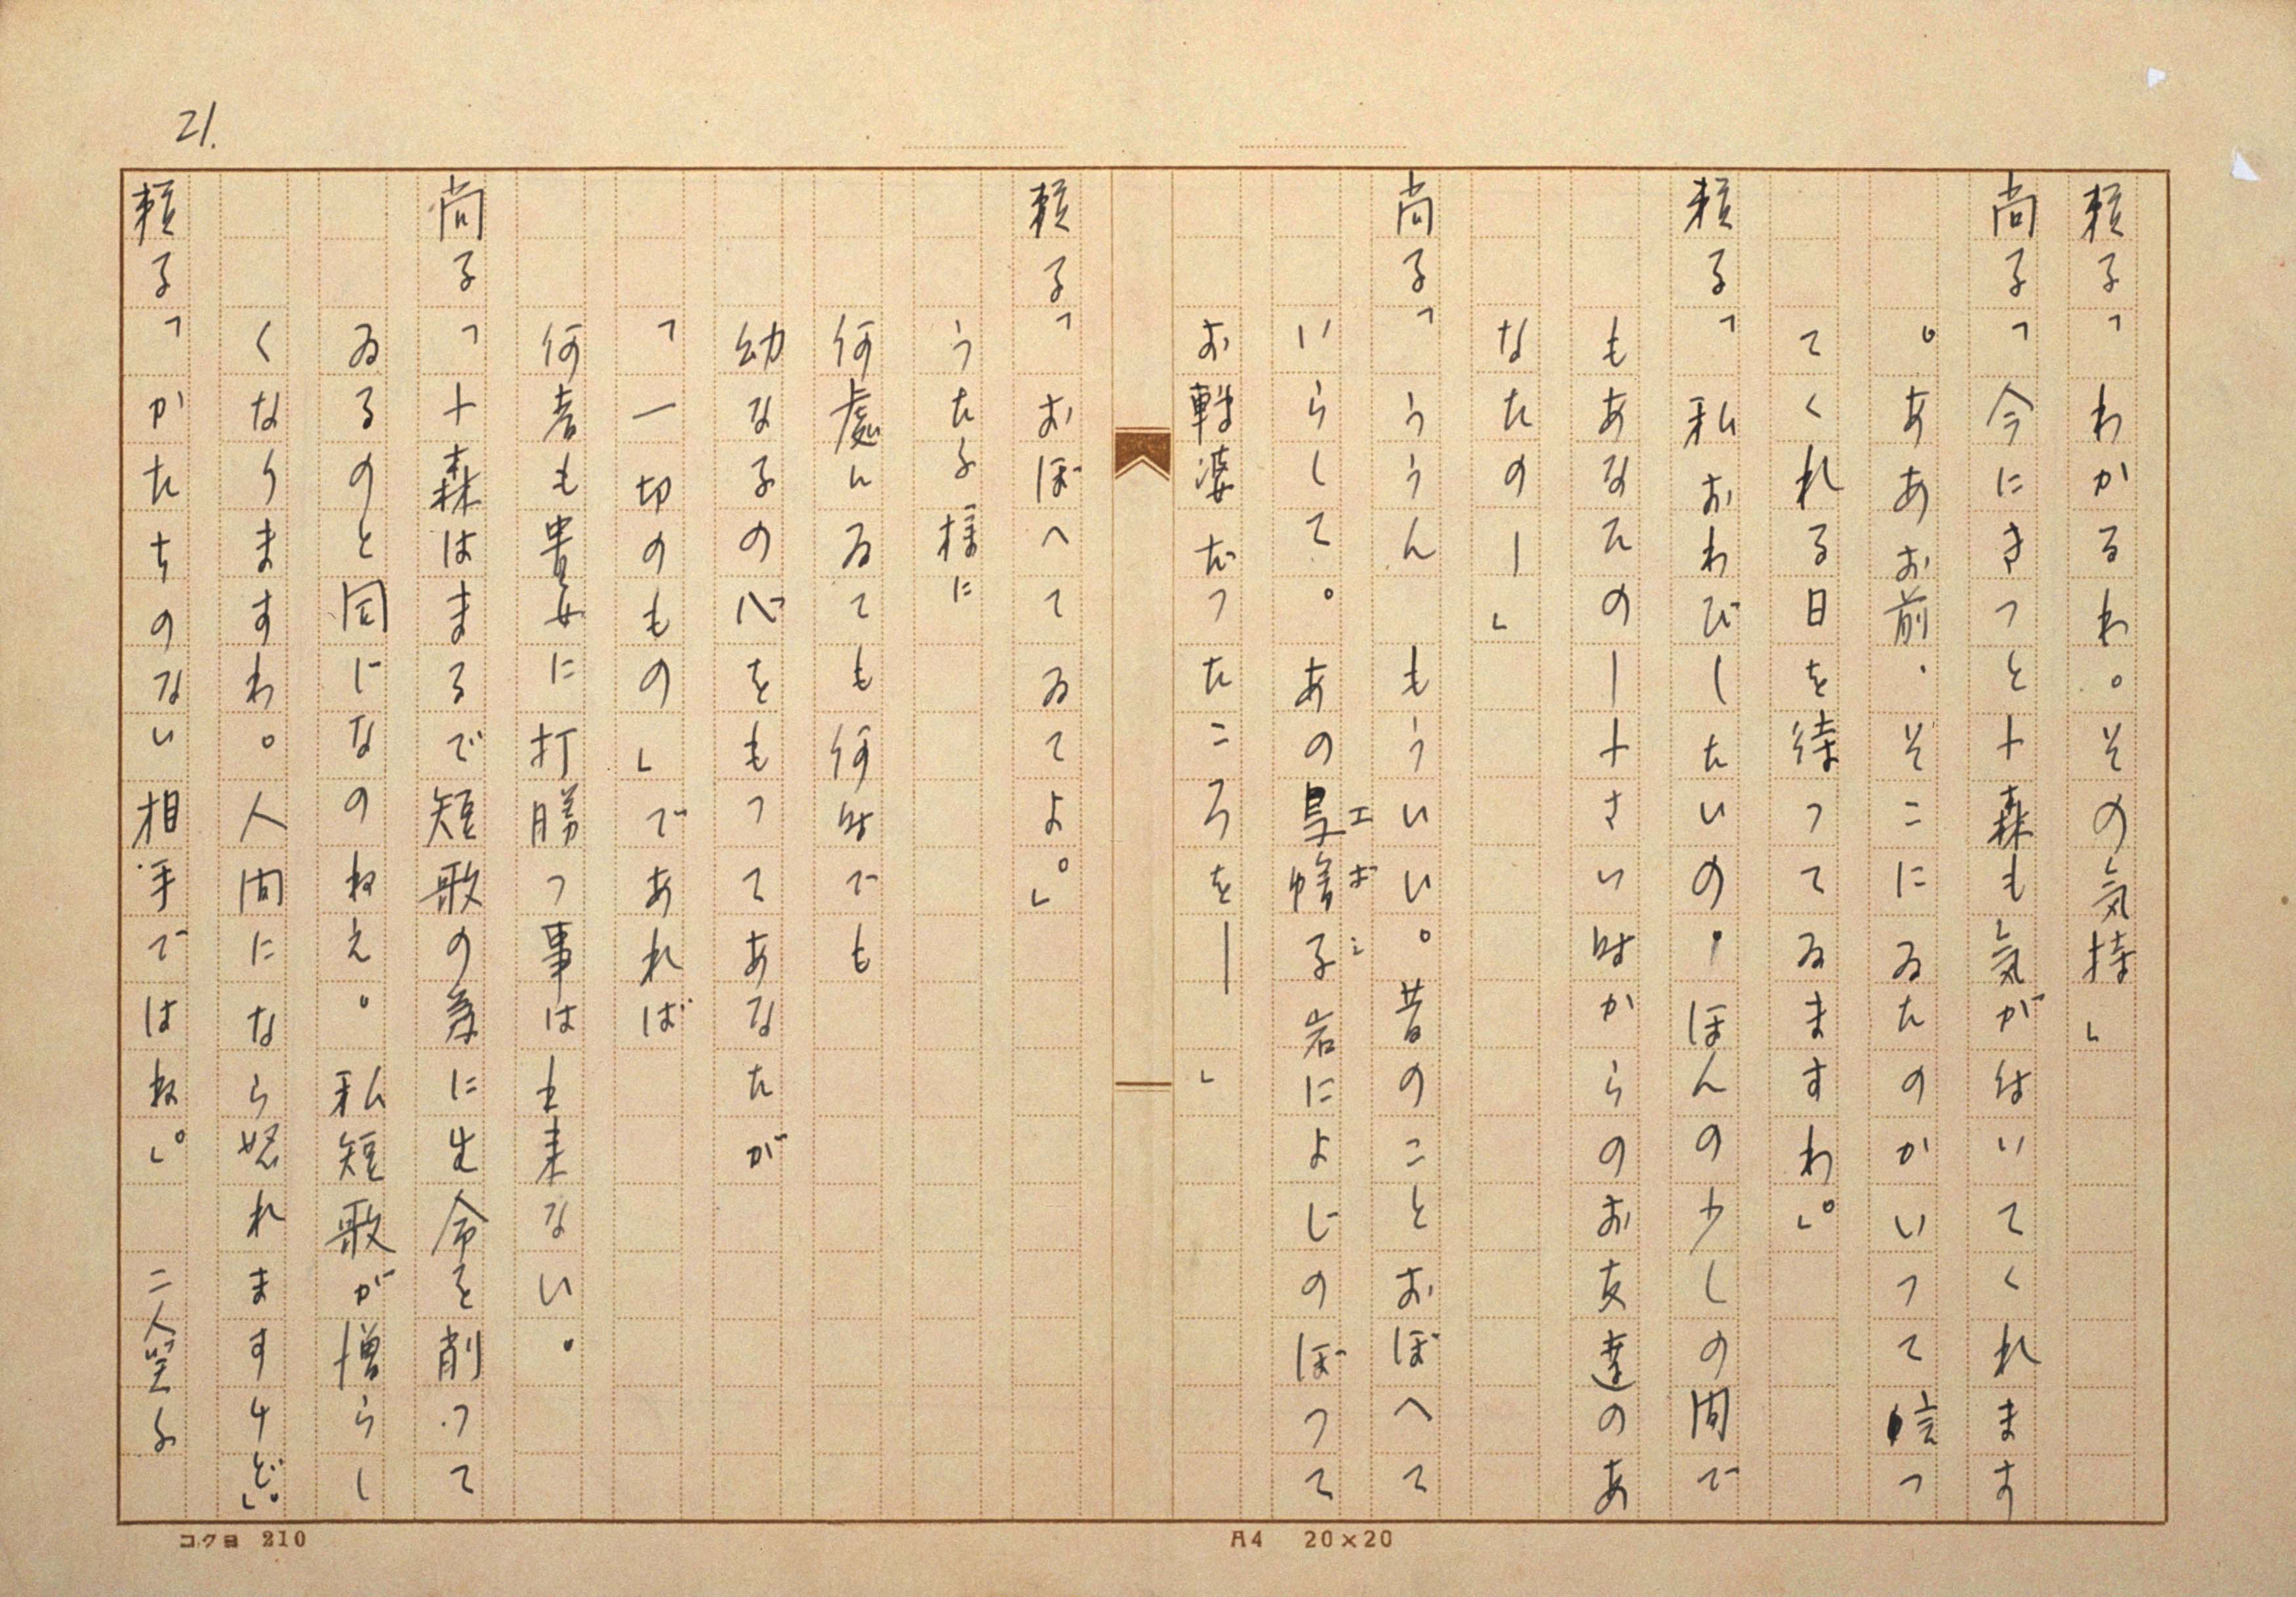 21.
頼子「わかるわ。その気持」
尚子「今にきっと小森も気がはいてくれます
。ああお前、そこにゐたのかいって信っ
てくれる日を待ってゐますわ。」
頼子「私おわびしたいの・ほんの少しの間で
もあなたの―小さい時からのお友達のあ
なたの―」
尚子「ううん もういい。昔のことおぼへて
いらして。あの烏帽子岩によじのぼって
エボシ
お転婆だったころを―」
頼子「おぼへてゐてよ。」
うた子様に
何處にゐても何時でも
幼な子の心をもってあなたが
「一切のもの」であれば
何者も貴女に打勝つ事は出来ない。
尚子「小森はまるで短歌の為に生命を削って
ゐるのと同じなのねえ。私短歌が憎らし
くなりますわ。人間になら怒れますけど。」
頼子「かたちのない相手ではね。」 二人笑ふ
コクヨ 210
A4 20×20